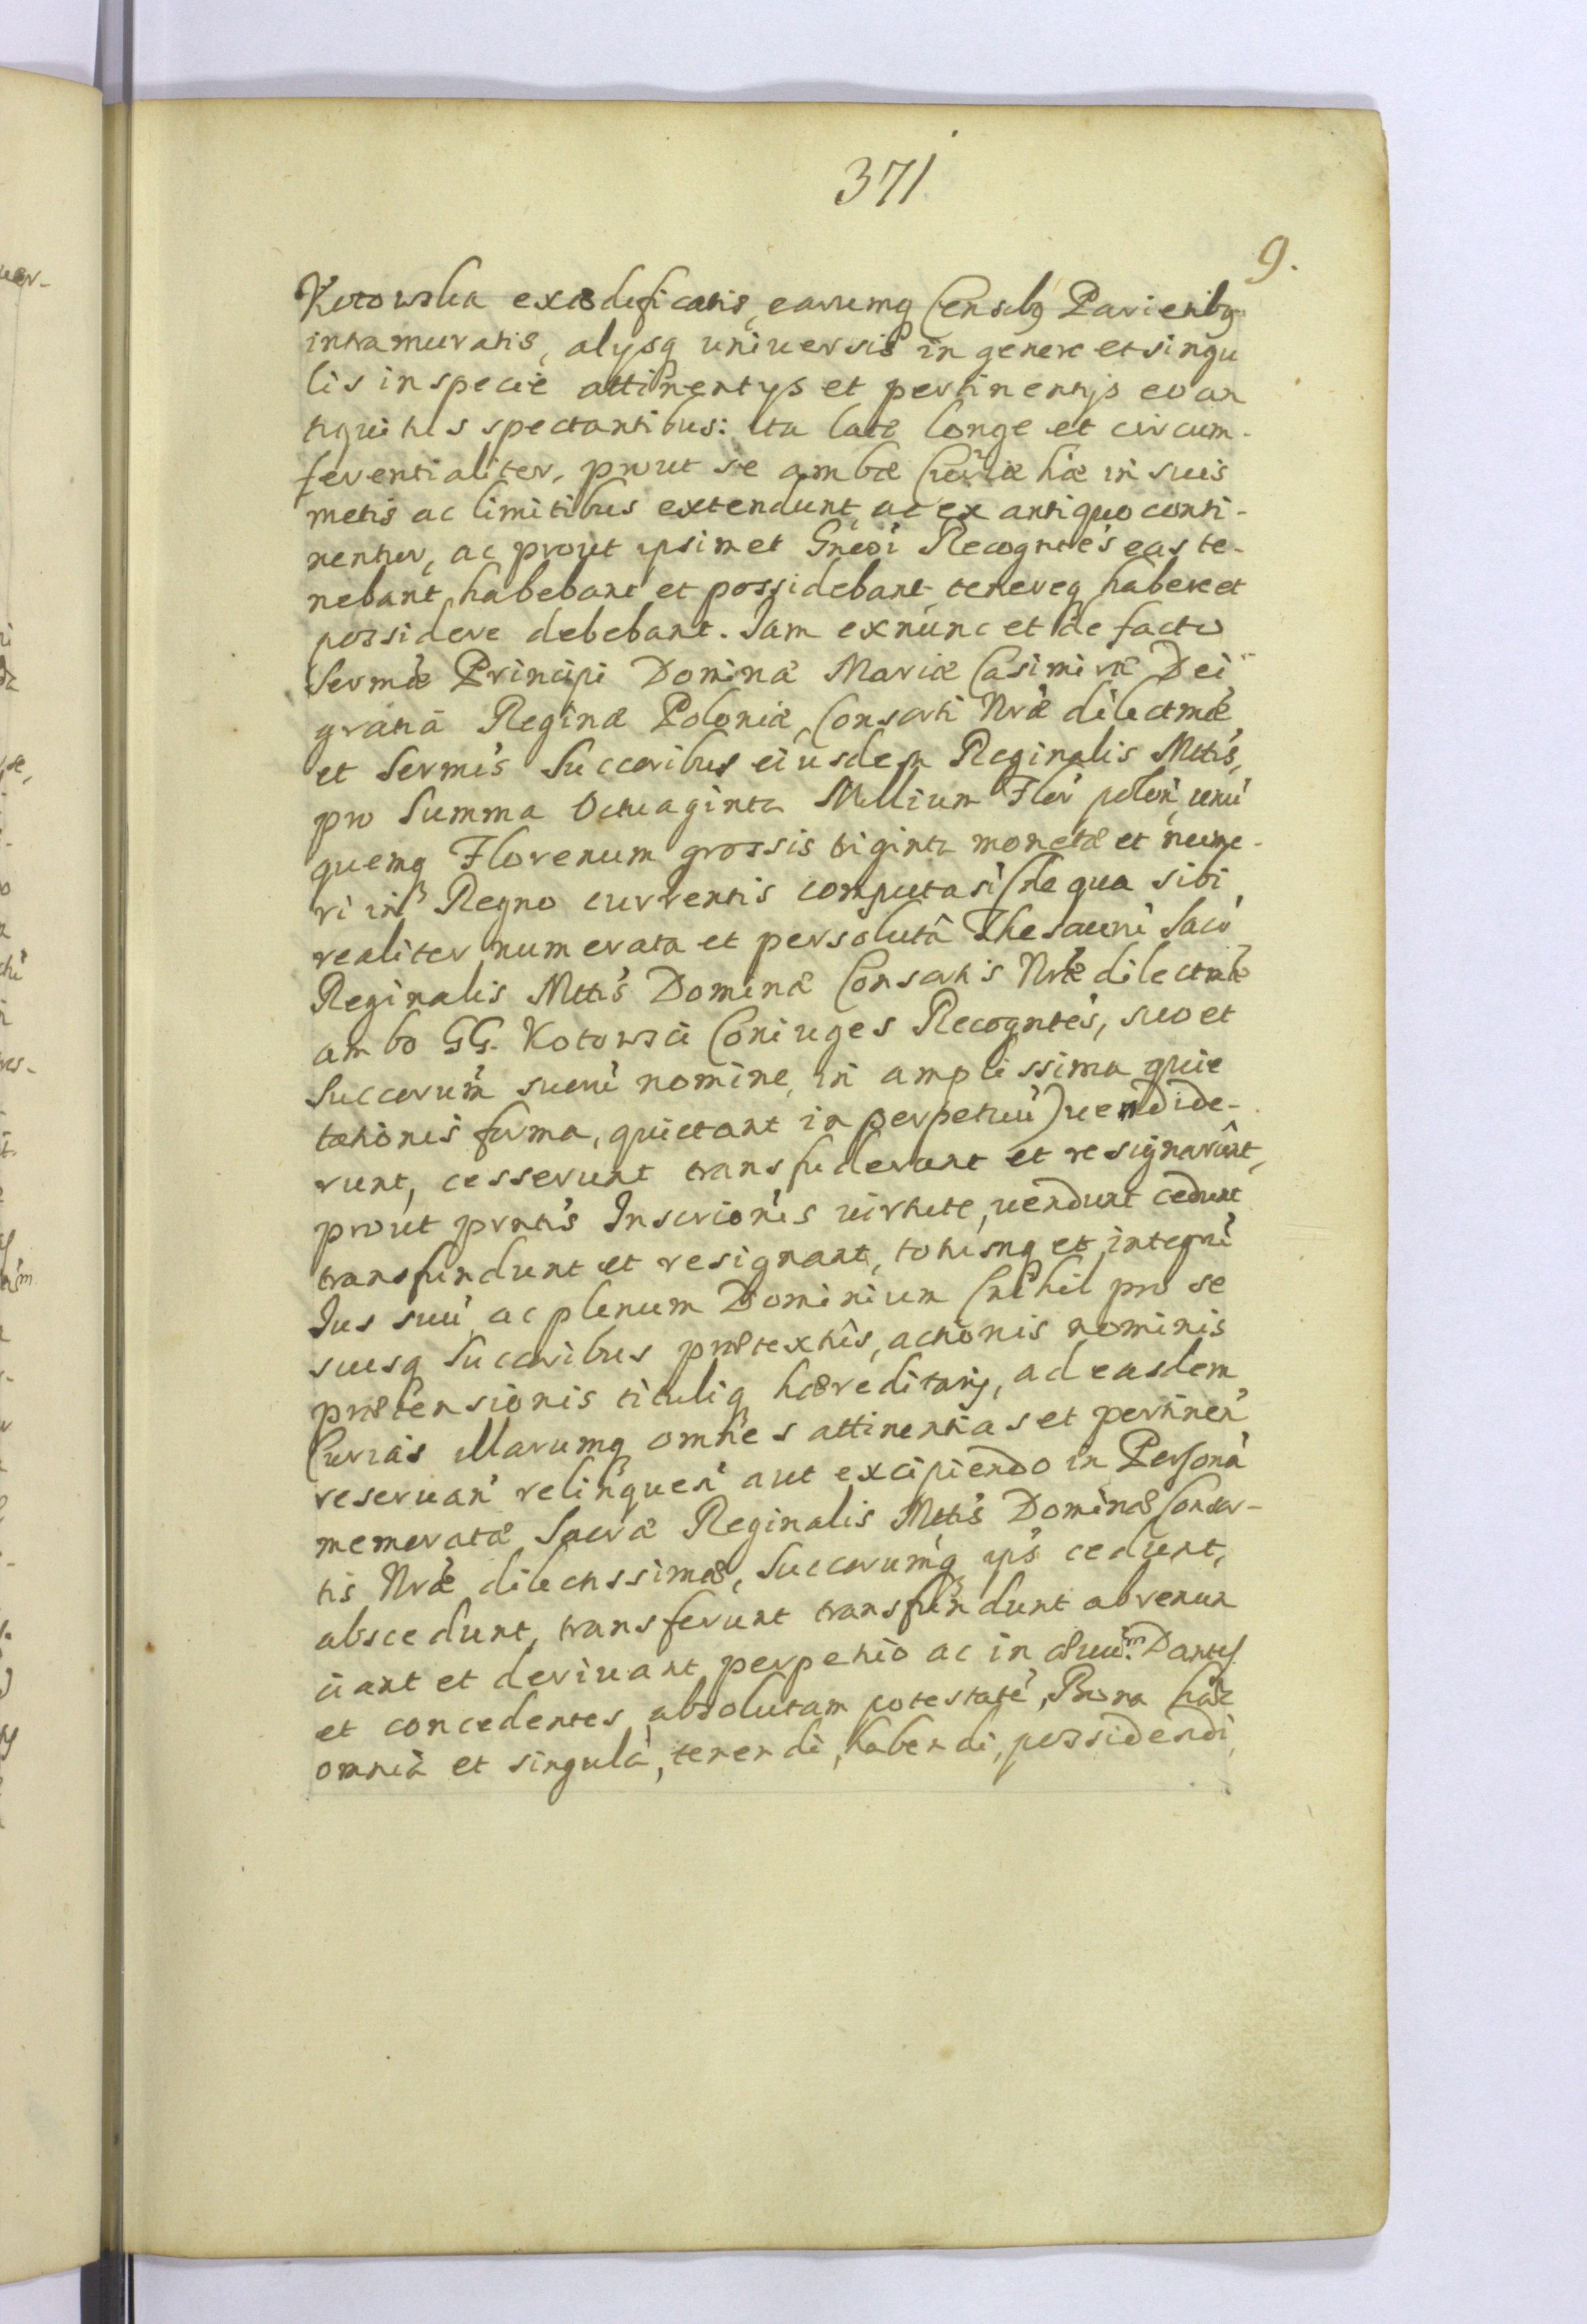 371
9.
Kotowska exædificatis, earumq Censibq Parietibq
intramuratis, alysq universis in genere et singu
lis in specie attinentys et pertinentys eo an
tiquitus spectantibus: ita late longe et circum-
ferentialiter, prout se ambæ Curiæ hæ in suis
metis ac limitibus extendunt, ac ex antiquo conti-
nentur, ac prout ipsimet Gnêsi Recogntês eas te-
nebant, habebant et possidebant, tenereq habere et
possidere debebant. Iam exnunc et de facto
Sermæ Principi Dominæ Mariæ Casimiræ Dei
gratiâ Reginæ Poloniæ, Consorti Nræ dilectmæ
et Sermis Succoribus eiusdem Reginalis Mttis,
pro Summa Octuaginta Millium Flor polon, unu
quemq Florenum grossis triginta monetæ et nume-
ri in Regno currentis computasi (de qua sibi
realiter numerata et persolutâ Thesauri Sacr
Reginalis Mttis Dominæ Consortis Nræ dilectmæ
ambo GG. Kotowscii Coniuges Recogntês, suo et
Succorum suoru nomine, in amplissima quie
tationis forma, quietant in perpetuu) uendide-
runt, cesserunt transfuderunt et resignarunt,
prout prntis Inscrionis uirtute, uendunt cedunt
transfundunt et resignant, totumq et integru
Ius suu ac plenum Dominium (nihil pro se
suisq Succoribus prætextûs, actionis nominis
prætensionis tituliq hæreditarij, ad easdem
Curias illarumq omnes attinentias et pertinen
reseruan relinquen aut excipiendo in Personâ
memoratæ Sacræ Reginalis Mttis Dominæ Consor-
tis Nræ dilectissimæ, Succorumq ips cedunt,
abscedunt, transferunt transfundunt abrenun
ciant et deriuant perpetuo ac in æuum. Dantes
et concedentes absolutam potestate, Bona hæc
omnia et singula, tenendi, habendi, possidendi,